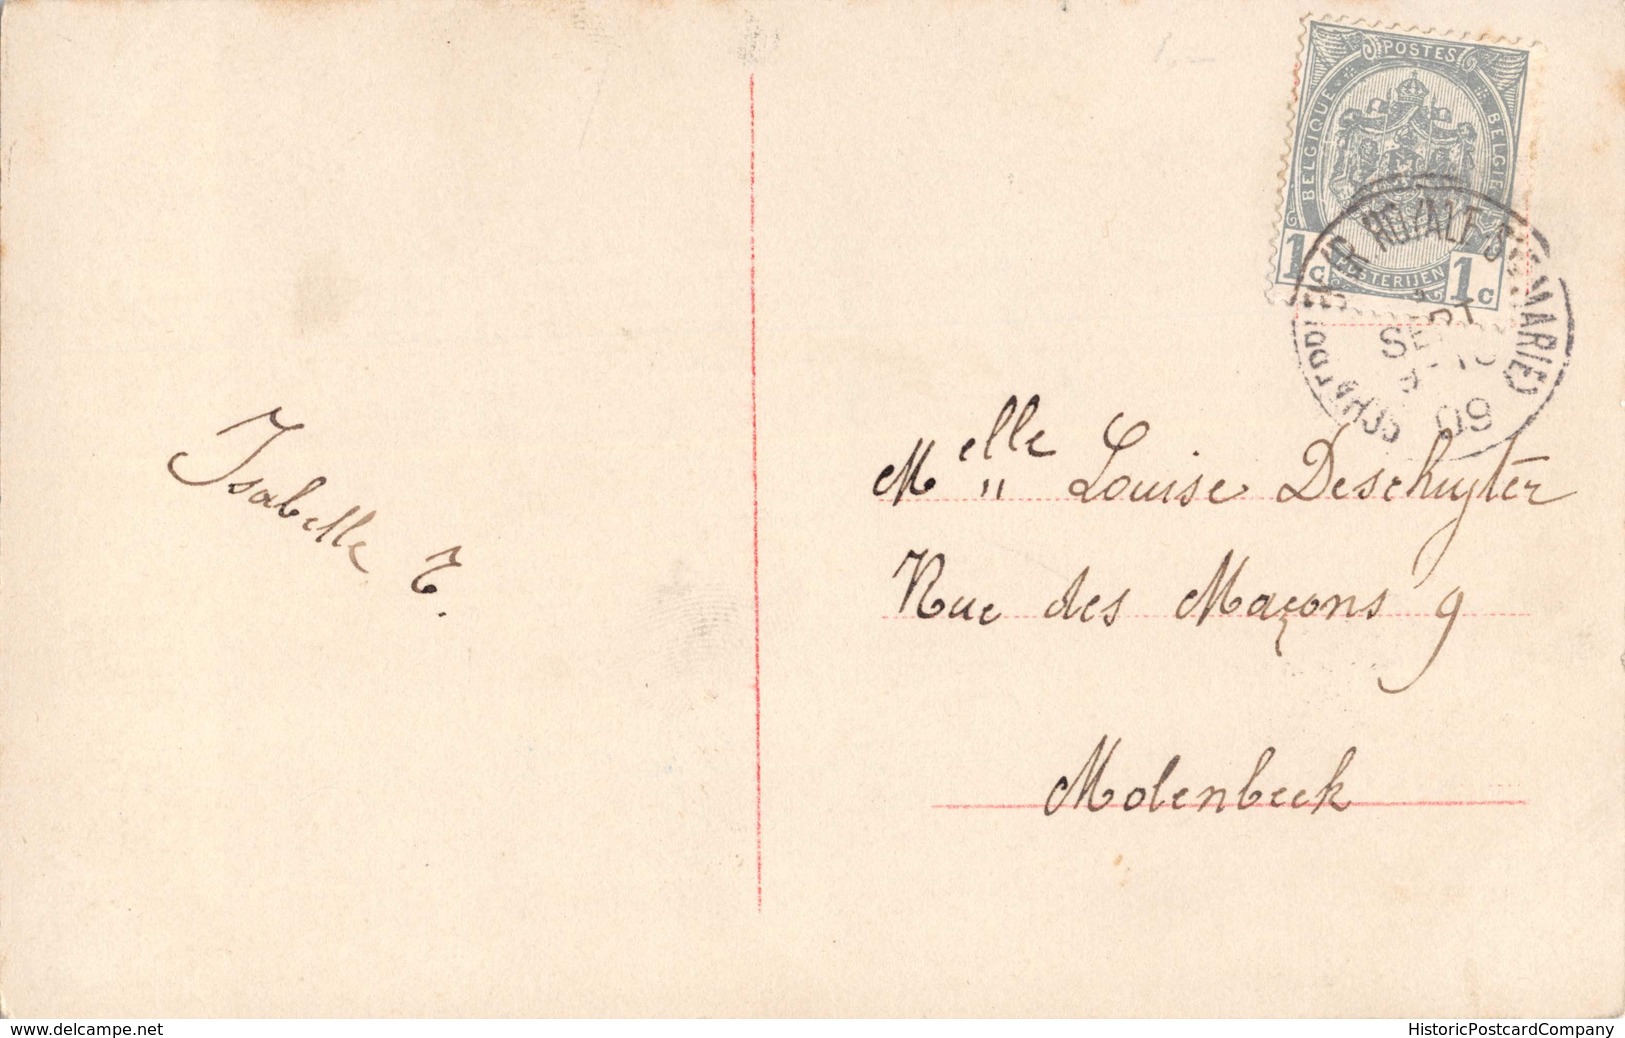 POSTES
BELGIQUE
BELGIE
1c POSTERIJEN 1c
ROYALE Ste MARIE)
SEPT
09
Isabelle
Melle " Louise Deschuyter
Rue des Maçons 9
Molenbeek
www.delcampe.net
HistoricPostcardCompany